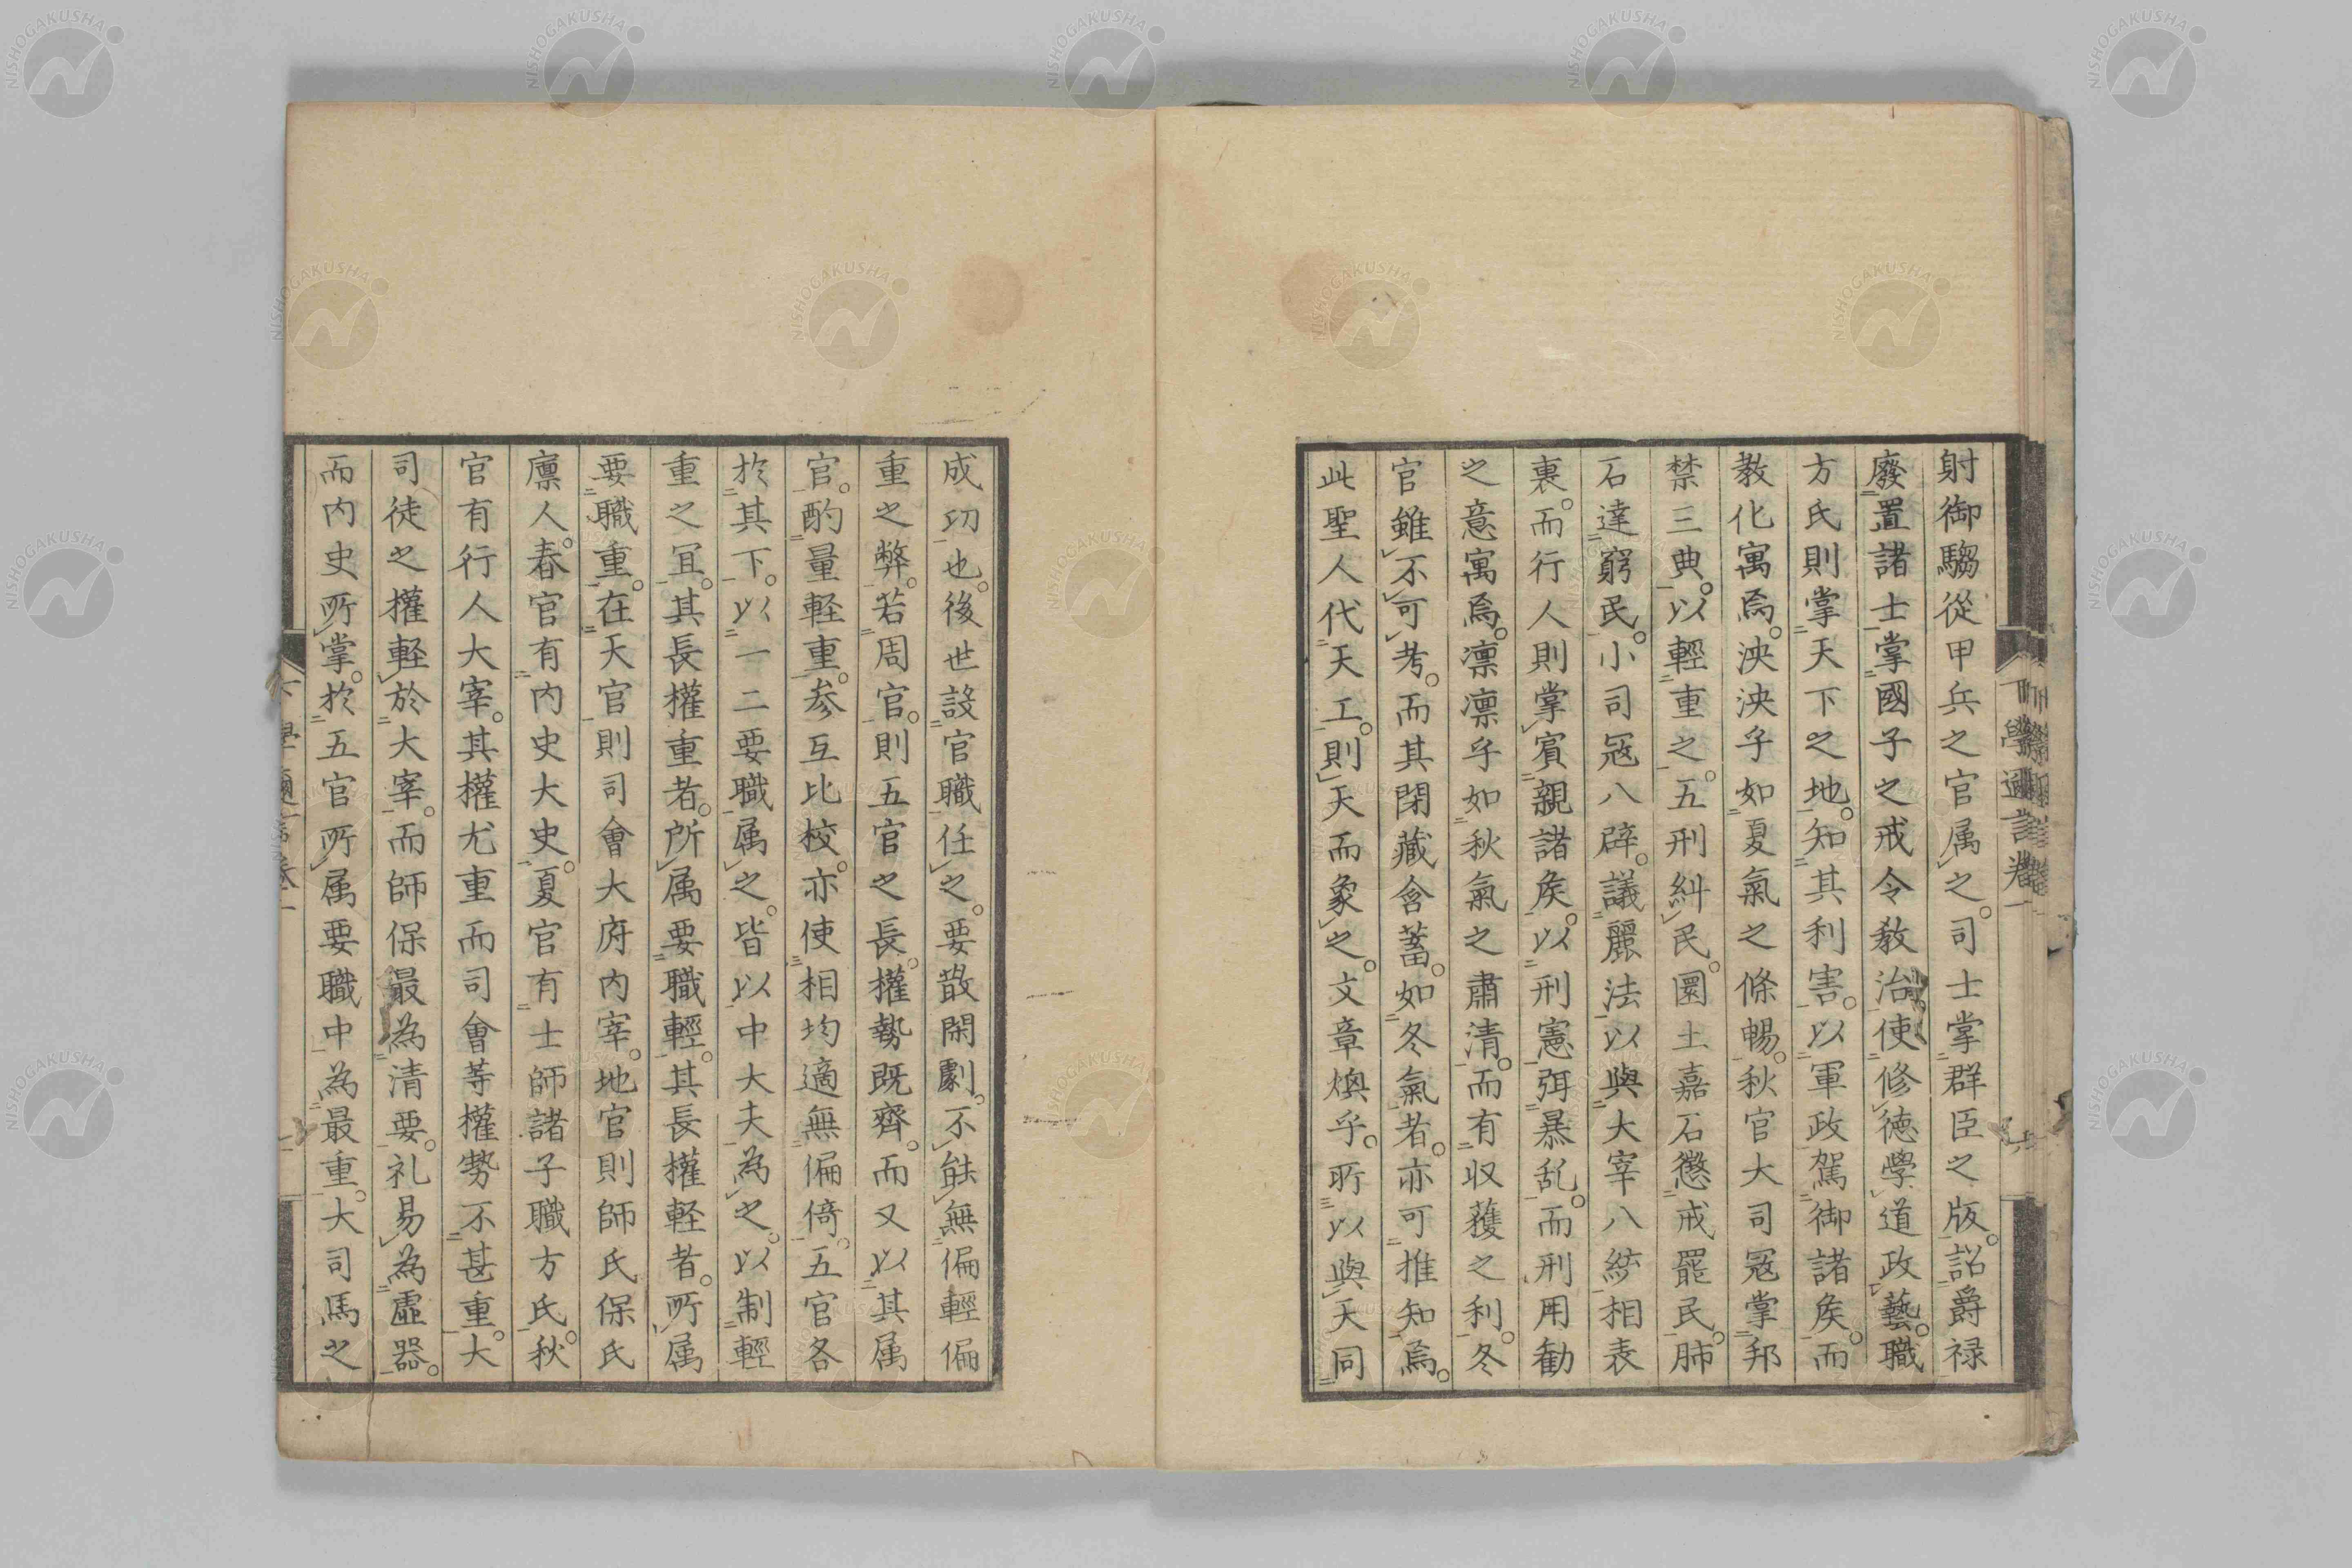 射御騶從甲兵之官属之。司士掌群臣之版。詔爵禄
廢置諸士掌國子之戒令敎治使修徳學道政藝。職
方氏則掌天下之地。知其利害。以軍政駕御諸矦。而
教化寓焉。泱泱乎如夏氣之條暢。秋官大司冦掌邦
禁三典。以輕重之。五刑糾民。圜土嘉石懲戒罷民。肺
石達窮民。小司冦八辟。議麗法以與大宰八統相表
裏。而行人則掌賓親諸矦。以刑憲弭暴乱。而刑用勧
之意寓焉。凛凛乎如秋氣之肅清。而有収獲之利。冬
官雖不可考。而其閉藏含蓄。如冬氣者。亦可推知焉。
此聖人代天工。則天而象之。文章煥乎。所以與天同
成功也。後世設官職任之。要散閑劇。不能無偏輕偏
重之弊。若周官。則五官之長。權勢既齊。而又以其属
官。酌量軽重。参互比校。亦使相均適無偏倚。五官各
於其下。以一二要職属之。皆以中大夫為之。以制輕
重之冝。其長權重者。所属要職輕。其長權軽者。所属
要職重。在天官則司會大府内宰。地官則師氏保氏
廩人。春官有内史大史。夏官有士師諸子職方氏。秋
官有行人大宰。其權尤重而司會等權勢不甚重。大
司徒之權軽於大宰。而師保最為清要。礼易為虚器。
而内史所掌。於五官所属要職中為最重。大司馬之
下學邇言卷一
NISHOGAKUSHA